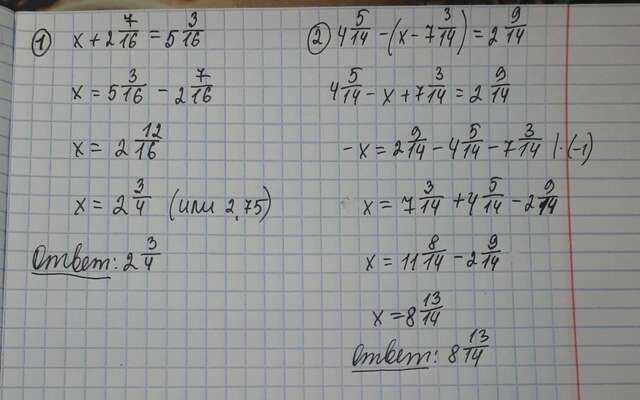 ① x + 2 7/16 = 5 3/16
x = 5 3/16 - 2 7/16
x = 2 12/16
x = 2 3/4 (или 2,75)
Ответ: 2 3/4
② 4 5/14 - (x - 7 3/14) = 2 9/14
4 5/14 - x + 7 3/14 = 2 9/14
-x = 2 9/14 - 4 5/14 - 7 3/14 | · (-1)
x = 7 3/14 + 4 5/14 - 2 9/14
x = 11 8/14 - 2 9/14
x = 8 13/14
Ответ: 8 13/14